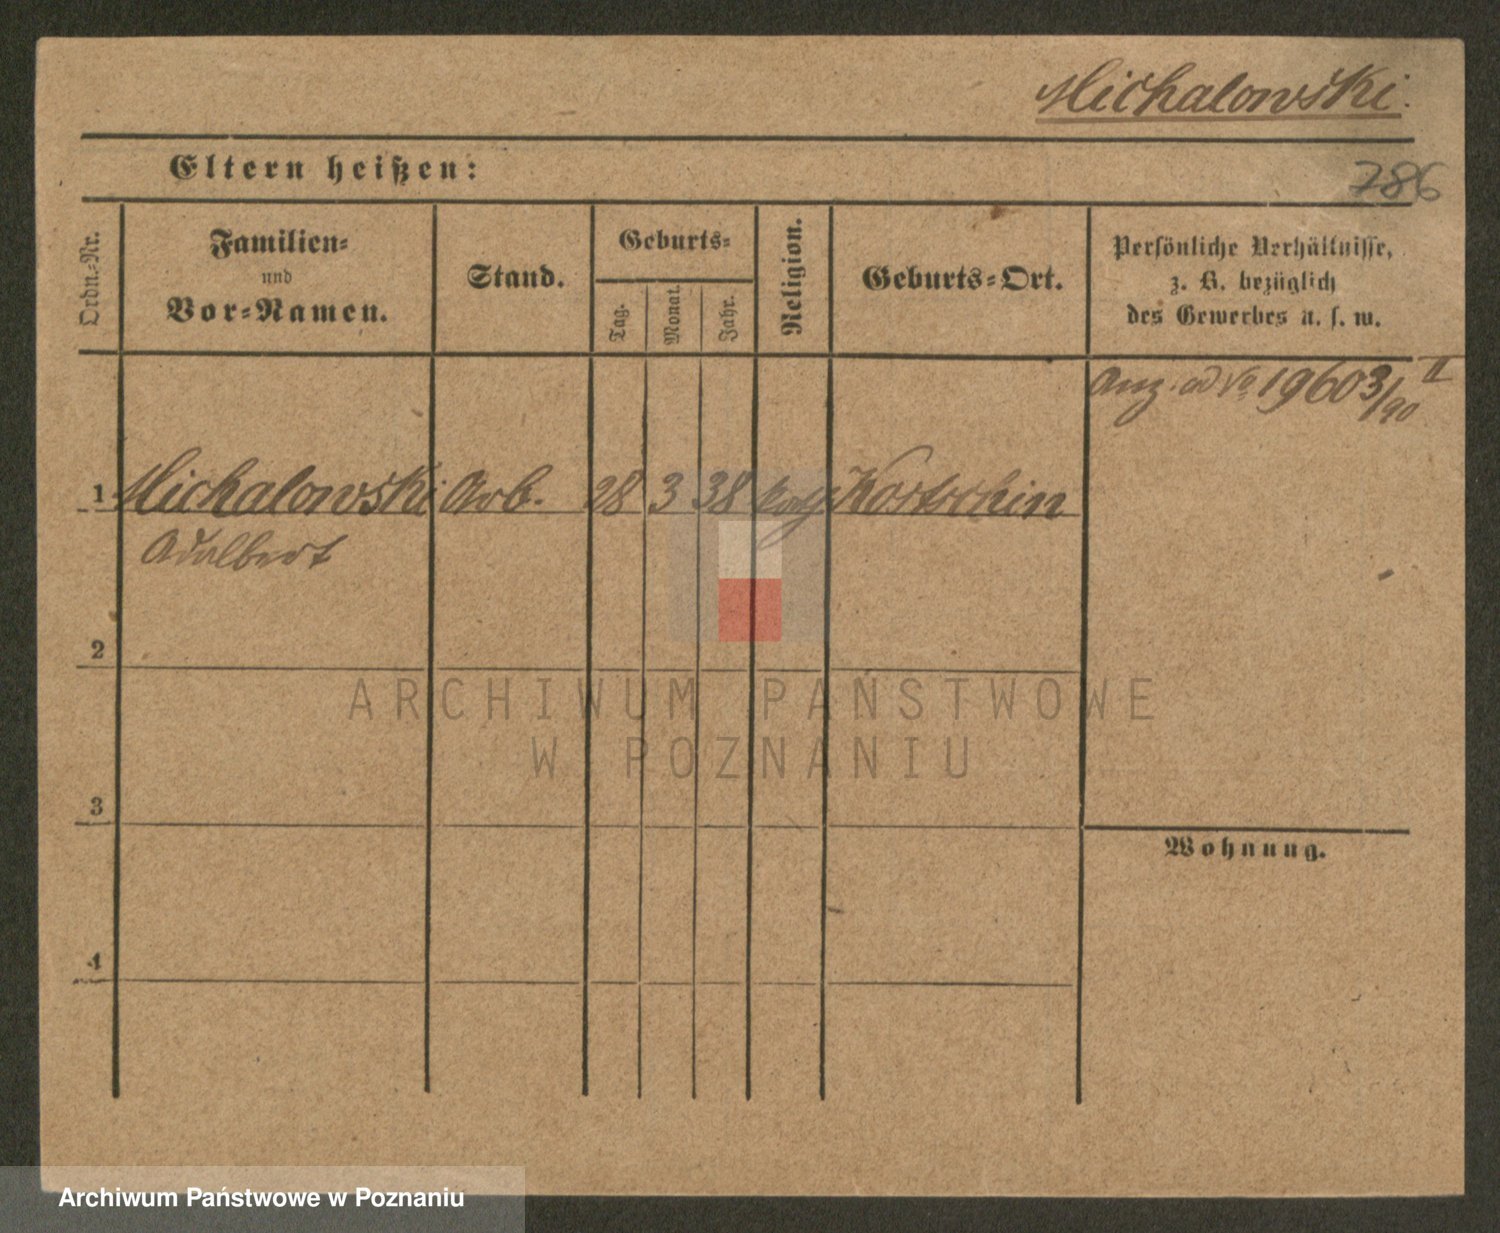 Michalowski.
Eltern heißen:
786
Ordn.-Nr.
Familien-
und
Vor-Namen.
Stand.
Geburts-
Tag.
Monat.
Jahr.
Religion.
Geburts-Ort.
Persönliche Verhältnisse,
z. B. bezüglich
des Gewerbes u. s. w.
Anz. ad No 19603/90 II
1 Michalowski Arb. 28 3 38 kath Kortschin
Adalbert
2
3
4
Wohnung.
ARCHIWUM PAŃSTWOWE
W POZNANIU
Archiwum Państwowe w Poznaniu